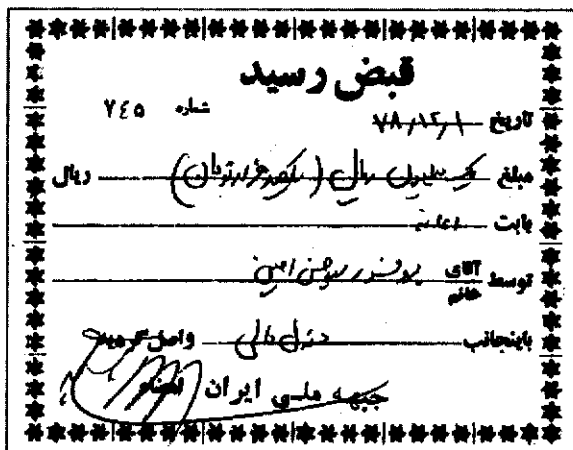 قبض رسید
شماره ۷۴۵
تاریخ ۷۸,۱۲,۱
مبلغ یک میلیون ریال (یکصد هزار تومان) ریال
بابت اعانه
توسط آقای خانم پروفسور سید حسن امین
باینجانب مسئول مالی واصل گردید
جبهه ملی ایران امضاء